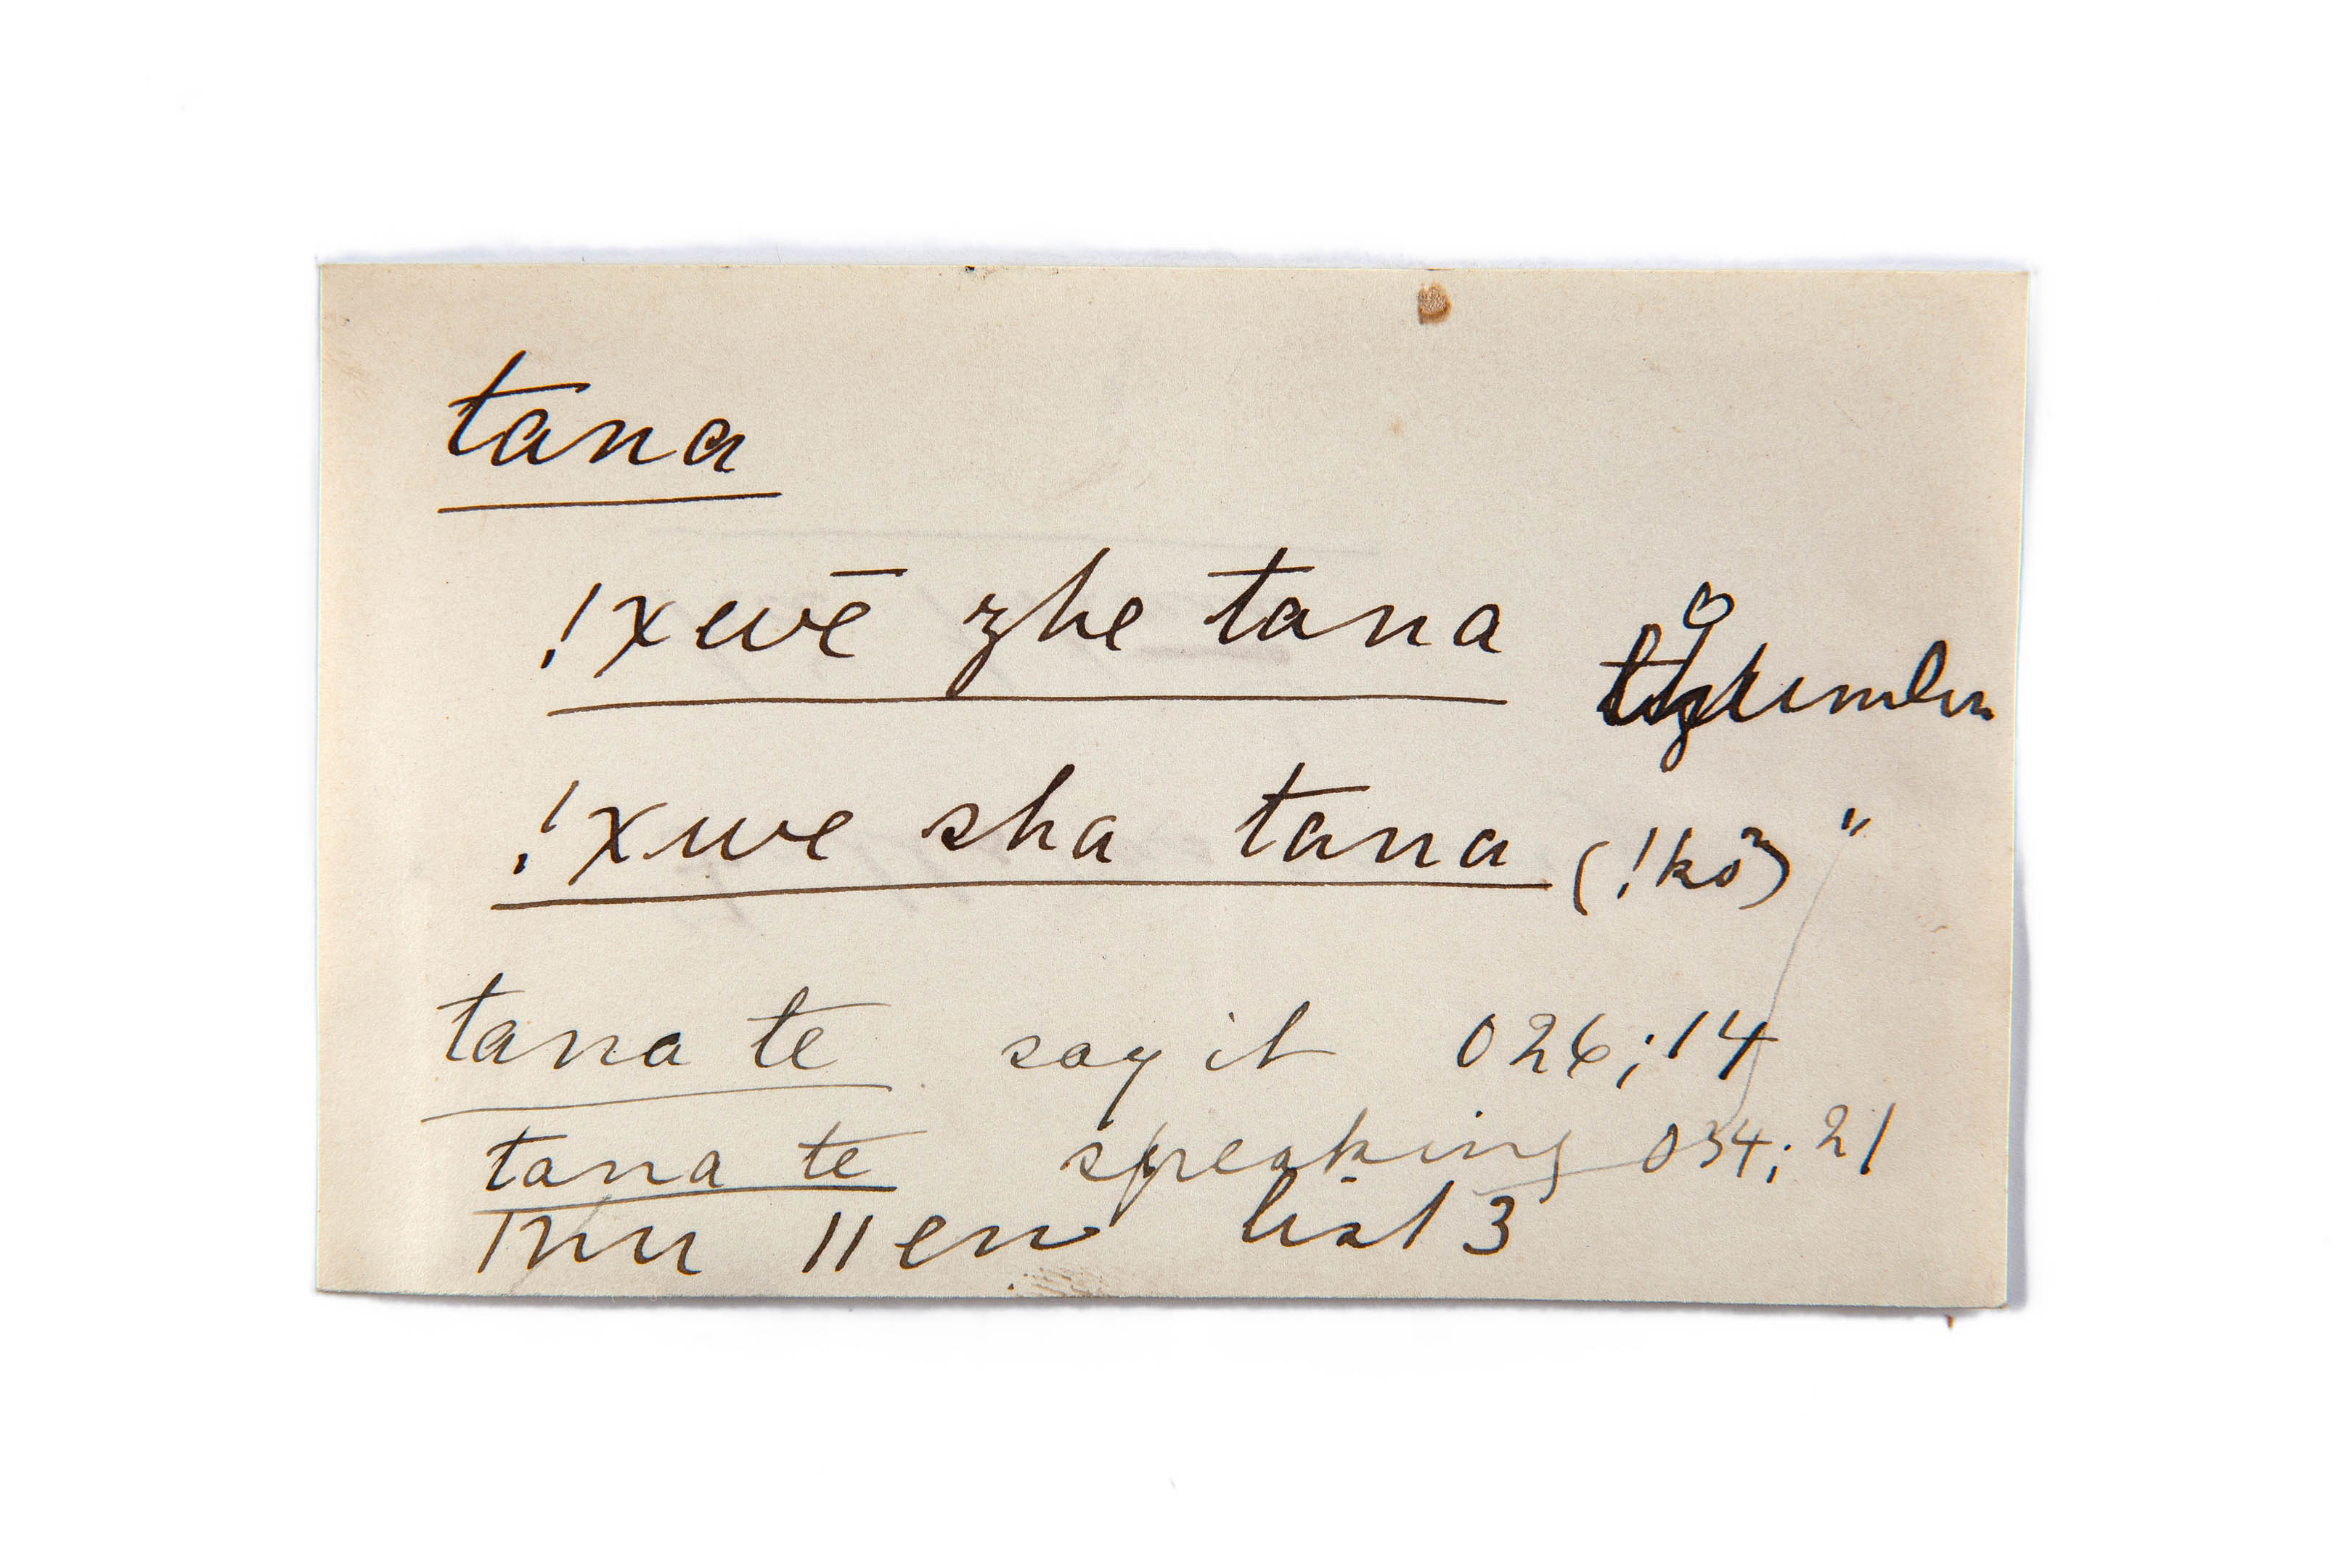 tana
!xwē zhe tana
!xwe sha tana (!kõ) "
tana te say it 026;14
tana te speaking 034;21
||en list 3